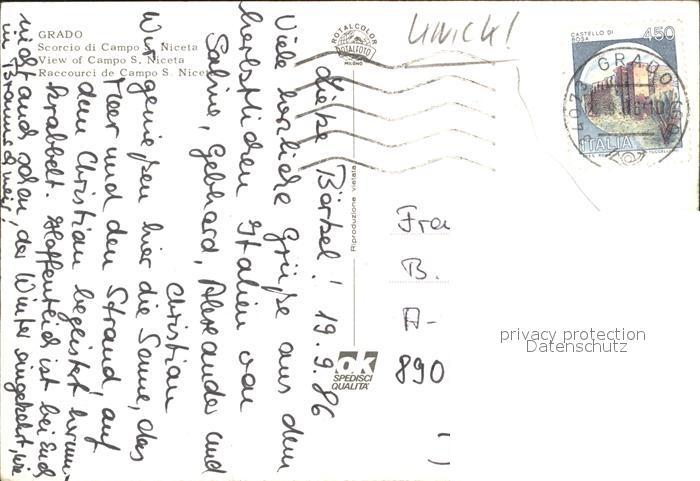 GRADO
Scorcio di Campo S. Niceta
View of Campo S. Niceta
Raccourci de Campo S. Niceta
ROTALCOLOR
ROTALFOTO
MILANO
Riproduzione vietata
ok
SPEDISCI
QUALITA'
CASTELLO DI
ROSA
450
ITALIA
34073 GRADO (GO)
Liebe Bärbel! 19.9.86
Viele herzliche Grüße aus dem
herbstlichen Italien von
Sabine, Gebhard, Alexander und
Christian
Wir genießen hier die Sonne, das
Meer und den Strand, auf
dem Christian begeistert herum-
krabbelt. Hoffentlich ist bei Euch
nicht auch schon, der Winter eingekehrt, wie
in
Frau
B.
A-
890
privacy protection
Datenschutz